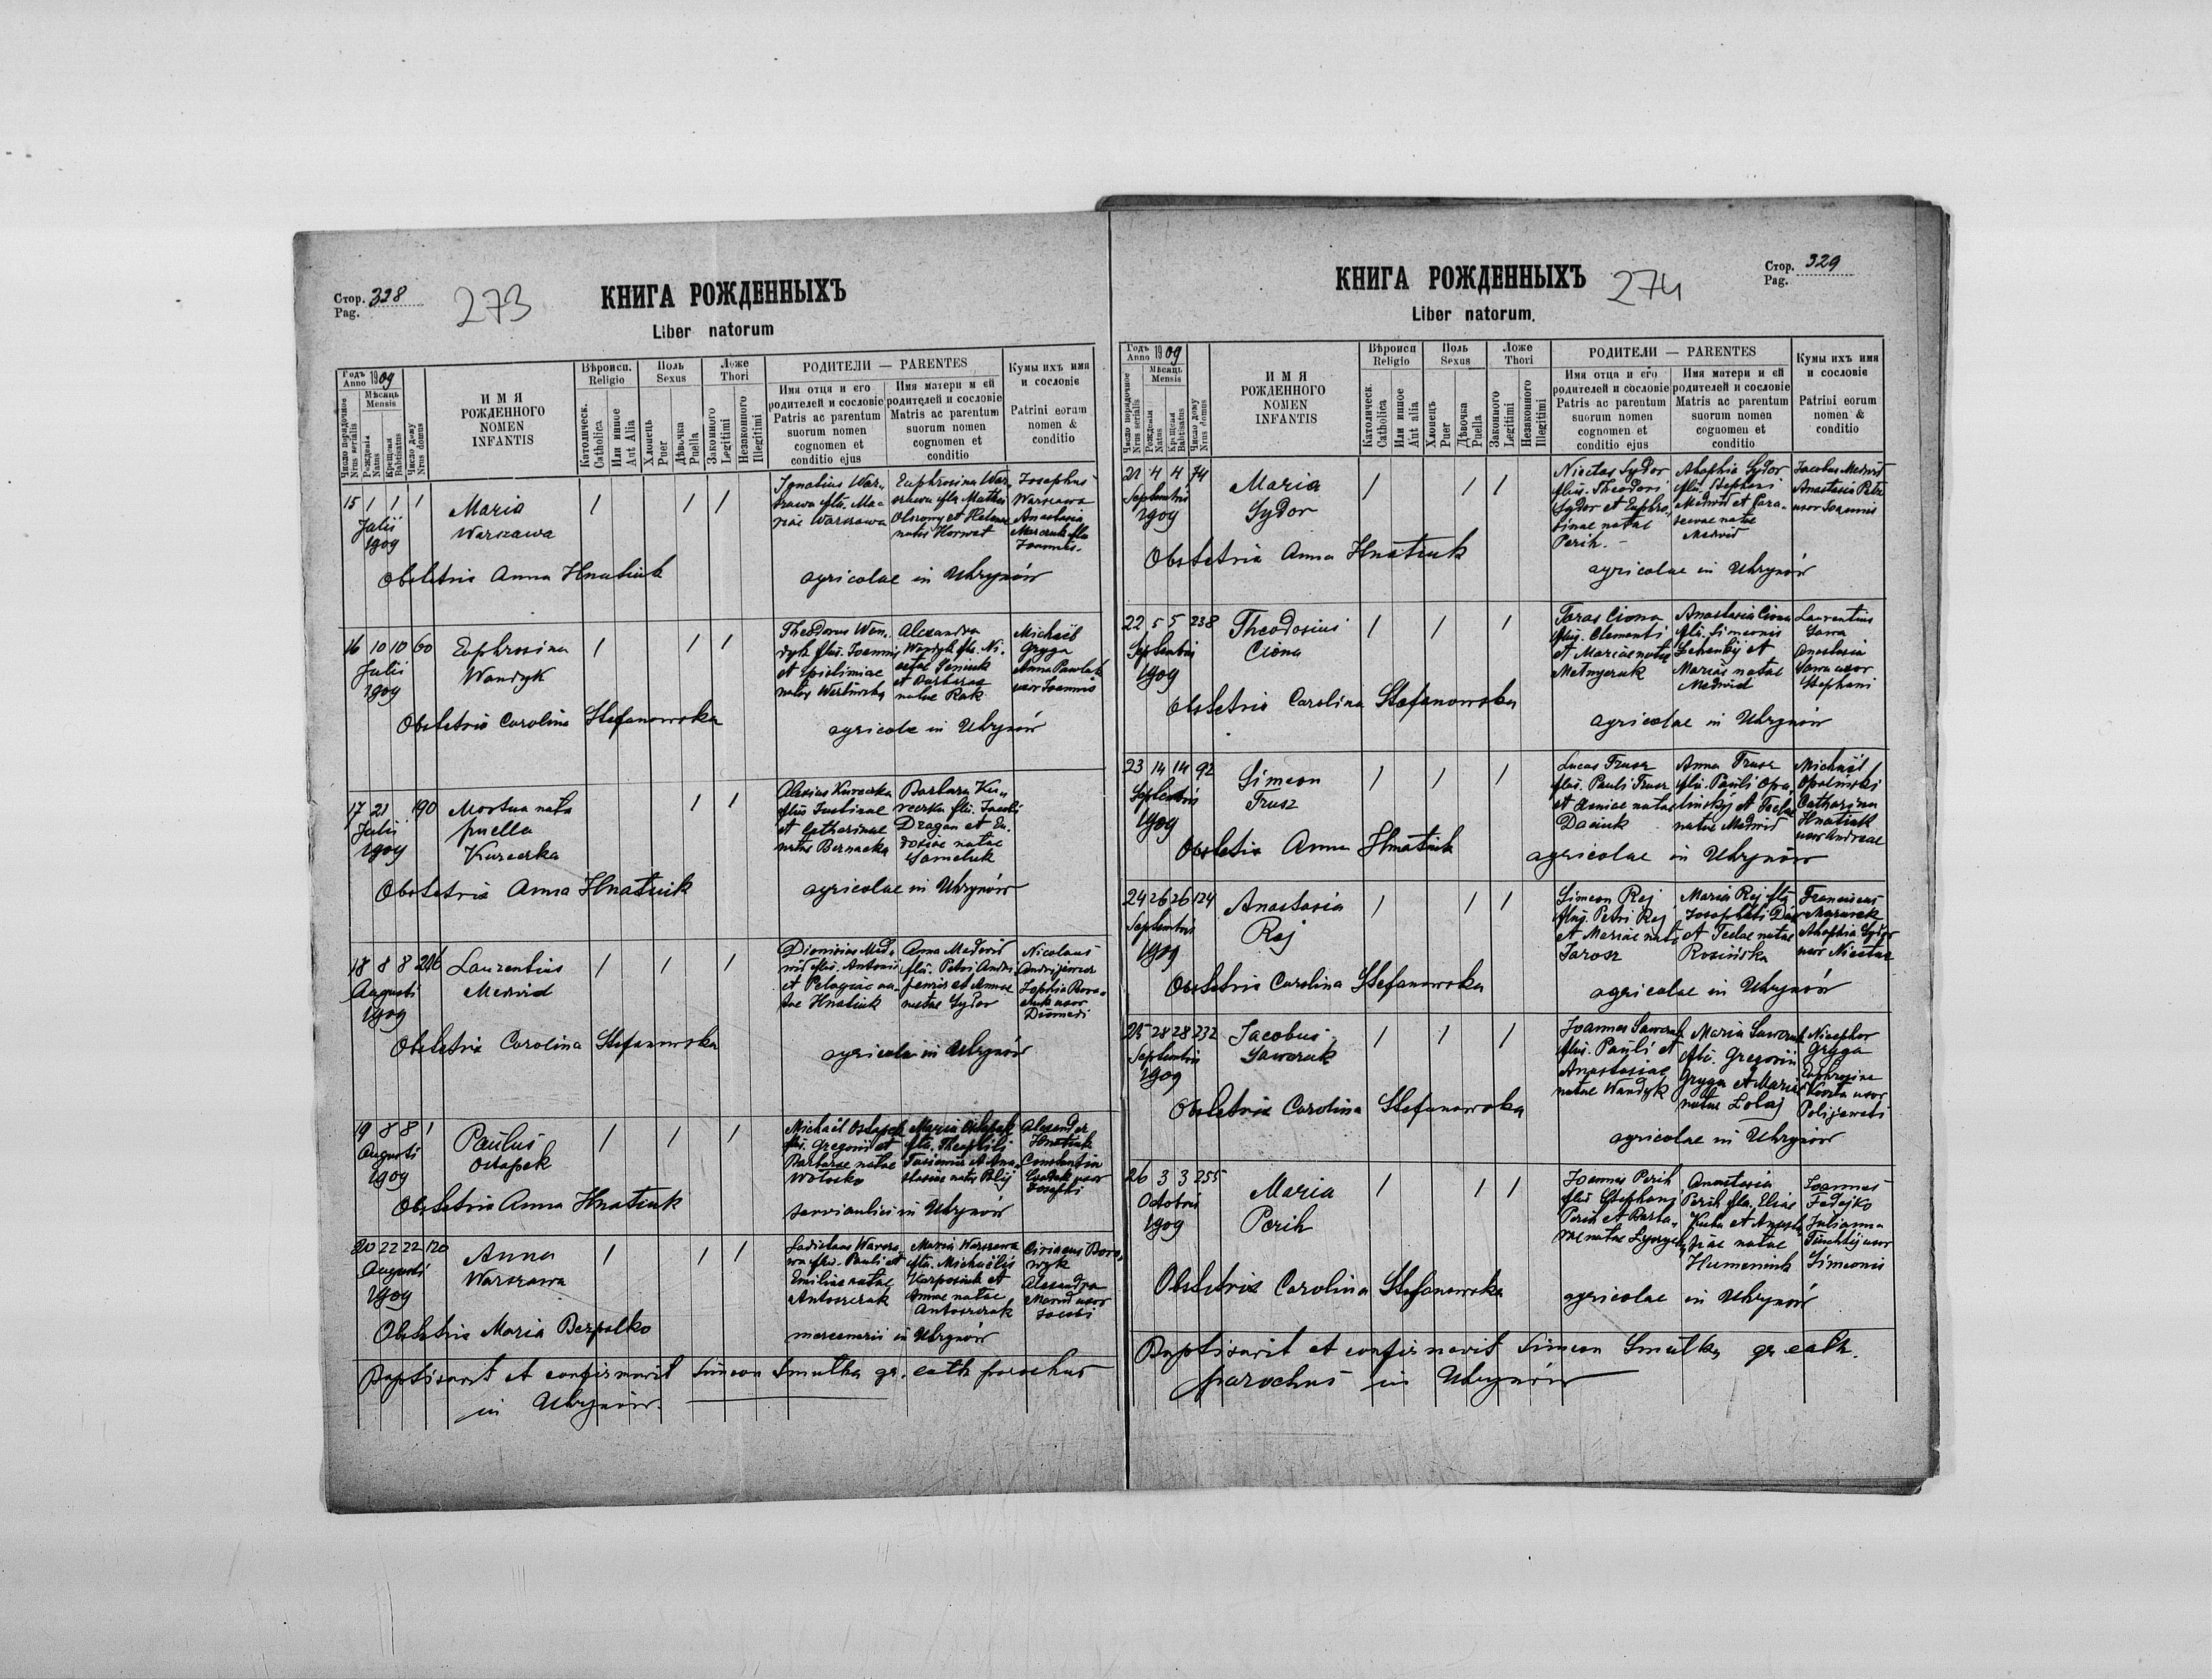 Стор. 328
Pag.
273
КНИГА РОЖДЕННЫХЪ
Liber natorum
Годъ
Anno 1909
Мѣсяць
Mensis
Число порядочное
Nrus serialis
Рожденія
Natus
Крещенія
Babtisatus
Число дому
Nrus domus
ИМЯ
РОЖДЕННОГО
NOMEN
INFANTIS
Вѣроисп.
Religio
Католическ.
Catholica
Или инное
Aut Alia
Поль
Sexus
Хлопець
Puer
Дѣвочка
Puella
Ложе
Thori
Законного
Legitimi
Незаконного
Illegitimi
РОДИТЕЛИ — PARENTES
Имя отца и его
родителей и сословіе
Patris ac parentum
suorum nomen
cognomen et
conditio ejus
Имя матери и ей
родителей и сословіе
Matris ac parentum
suorum nomen
cognomen et
conditio
Кумы ихъ имя
и сословіе
Patrini eorum
nomen &
conditio
15 1 1 1
Julii
1909
Maria
Warszawa
1 1 1
Ignatius War„
szawa filii. Ma„
riae Warszawa
Euphrosina War„
szawa filia Mathei
Olszowy et Helenae
natae Horwat
Josephus
Warszawa
Anastasia
Joannis.
Obstetrix Anna Hnatiuk
agricolae in Uhrynów
16 10 10 60
Julii
1909
Euphrosina
Wandyk
1 1 1
Theodorus Wan„
dyk filii. Joannis
et
natae
Alexandra
Wandyk filia. Ni„
cetae Seniuk
et Barbarae
natae Rak
Michaël
Gryga
Anna Pawluk
uxor Joannis
Obstetrix Carolina Stefanowska
agricolae in Uhrynów
17 21 190
Julii
1909
Mortua nata
puella
Kureczka
1 1
Alexius Kureczka
filius Justinae
et Catharinae
natae Bernacka
Barbara Ku„
reczka filia. Jacobi
Dragan et Eu„
doxiae natae
Obstetrix Anna Hnatiuk
agricolae in Uhrynów
18 8 8 246
Augusti
1909
Laurentius
Medwid
1 1 1
Dionisius Med„
wid filii. Antonii
et Pelagiae na„
tae Hnatiuk
Anna Medwid
filia. Petri Andri
et Annae
natae Sydor
Nicolaus
Zophia
uxor
Diomedi
Obstetrix Carolina Stefanowska
agricolae in Uhrynów
19 8 8 1
Augusti
1909
Paulus
Ostapek
1 1 1
Michaël Ostapek
filii. Gregorii et
Barbarae natae
Wołosko
Maria Ostapek
filia. Theophili
et Ana„
stasiae natae Polij
Alexander
Hnatiuk
Constantia
uxor
Josephi
Obstetrix Anna Hnatiuk
in Uhrynów
20 22 22 120
Augusti
1909
Anna
Warszawa
1 1 1
Ladislaus Warsza„
wa filii. Pauli et
Emiliae natae
Antoszczuk
Maria Warszawa
filia. Michaëlis
Karpowiuk et
Annae natae
Antoszczuk
Ciriacus Boro„
wyk
Alexandra
uxor
Jacobi
Obstetrix Maria Bezpalko
mercenarii in Uhrynów
Baptisavit et confirmavit Simeon Smulka gr. cath parochus
in Uhrynów.
Стор. 329
Pag.
274
КНИГА РОЖДЕННЫХЪ
Liber natorum.
Годъ
Anno 1909
Мѣсяць
Mensis
Число порядочное
Nrus serialis
Рожденія
Natus
Крещенія
Babtisatus
Число дому
Nrus domus
ИМЯ
РОЖДЕННОГО
NOMEN
INFANTIS
Вѣроисп
Religio
Католическ.
Catholica
Или инное
Aut alia
Поль
Sexus
Хлопець
Puer
Дѣвочка
Puella
Ложе
Thori
Законного
Legitimi
Незаконного
Illegitimi
РОДИТЕЛИ — PARENTES
Имя отца и его
родителей и сословіе
Patris ac parentum
suorum nomen
cognomen et
conditio ejus
Имя матери и ей
родителей и сословіе
Matris ac parentum
suorum nomen
cognomen et
conditio
Кумы ихъ имя
и сословіе
Patrini eorum
nomen &
conditio
21 4 4 74
Septembris
1909
Maria
Sydor
1 1 1
Nicetas Sydor
filius. Theodori
Sydor et Euphro„
sinae natae
Perih.
Ahaphia Sydor
filia. Stephani
Medwid et Para„
scevae natae
Medwid
Jacobus Medwid
Anastasia Petr
uxor Joannis
Obstetrix Anna Hnatiuk
agricolae in Uhrynów
22 5 5 238
Septembris
1909
Theodosius
Ciona
1 1 1
Taras Ciona
filius. Clementi
et Mariae natae
Metnyczuk
Anastasia Ciona
filia. Simeonis
et
Mariae natae
Medwid
Laurentius
Sawa
Anastasia
Sawa uxor
Stephani
Obstetrix Carolina Stefanowska
agricolae in Uhrynów
23 14 14 92
Septembris
1909
Simeon
Trusz
1 1 1
Lucas Trusz
filius. Pauli Trusz
et Xeniae natae
Daciuk
Anna Trusz
filia. Pauli Opa„
linskij et Teclae
natae Medwid
Michaël
Opalinski
Catharina
Hnatiuk
uxor Andreae
Obstetrix Anna Hnatiuk
agricolae in Uhrynów
24 26 26 124
Septembris
1909
Anastasia
Rej
1 1 1
Simeon Rej
filius. Petri Rej
et Mariae natae
Jarosz
Maria Rej filia
Josaphati
et Teclae natae
Rosińska
Franciscus
Mazurek
Ahaphia Sydor
uxor Nicetae
Obstetrix Carolina Stefanowska
agricolae in Uhrynów
25 28 28 232
Septembris
1909
Jacobus
Sawczuk
1 1 1
Joannes Sawczuk
filius. Pauli et
Anastasiae
natae Wandyk
Maria Sawczuk
filia. Gregorii
Gryga et Mariae
natae Lobaj
Nicephor
Gryga
Euphrosina
uxor
Obstetrix Carolina Stefanowska
agricolae in Uhrynów
26 3 3 255
Octobris
1909
Maria
Perih
1 1 1
Joannes Perih
filii Stephani
Perih et Barba„
rae natae
Anastasia
Perih filia. Eliae
Kuba et
natae
Humeniuk
Joannes
Fedejko
Julianna
uxor
Simeonis
Obstetrix Carolina Stefanowska
agricolae in Uhrynów
Baptisavit et confirmavit Simeon Smulka gr. cath.
parochus in Uhrynów